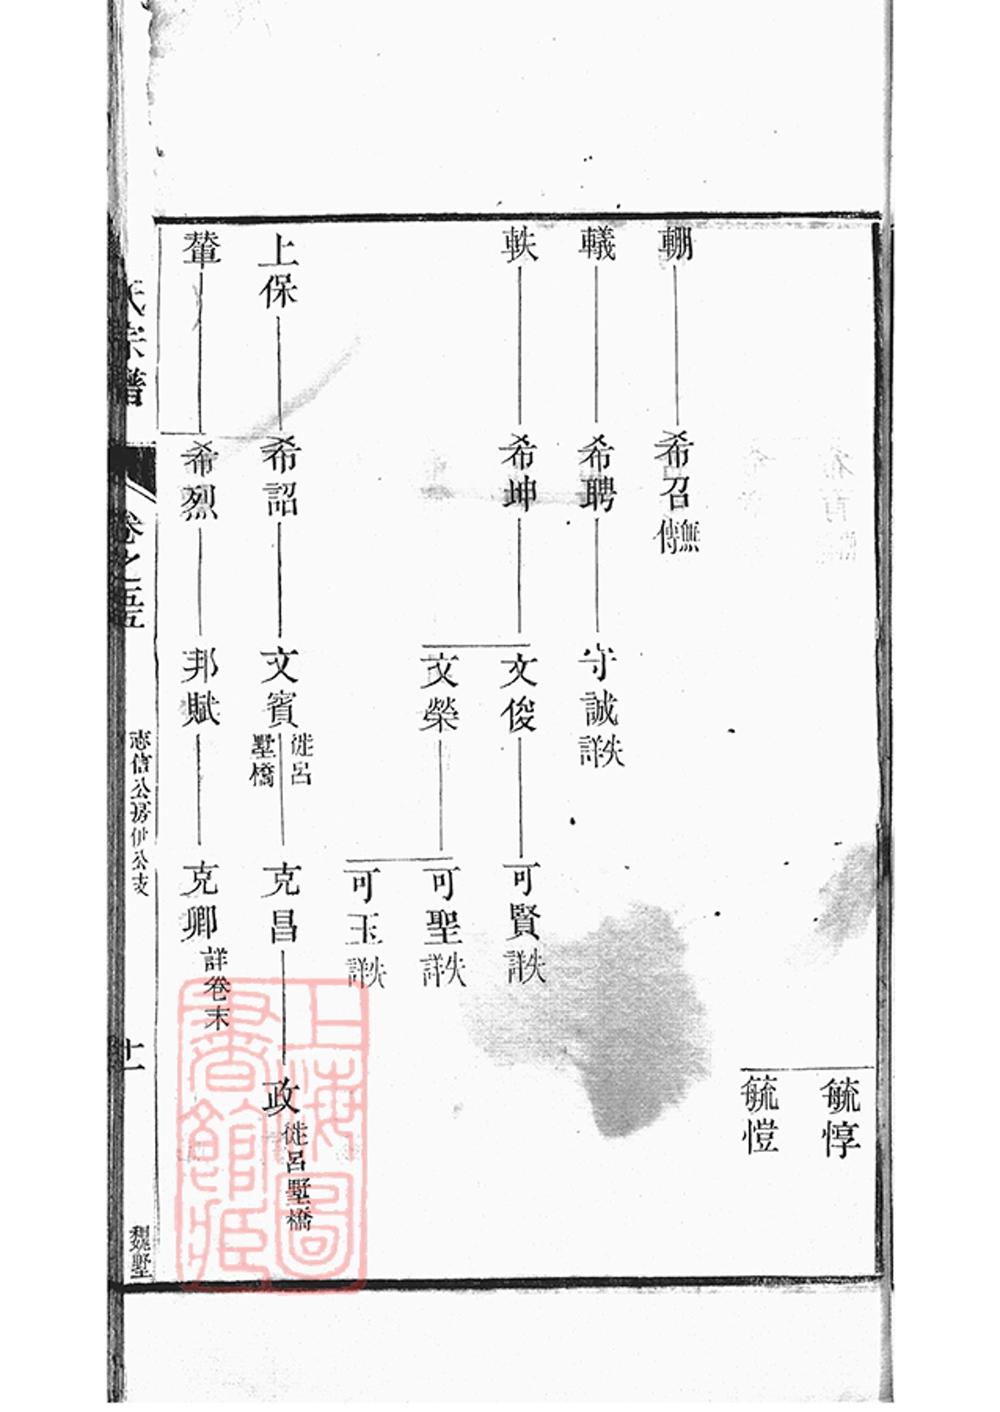 毓惇
毓愷
輣
希召無傳
轙
希聘
守誠失詳
軼
希坤
文俊
可賢失詳
文榮
可聖失詳
可玉失詳
上保
希詔
文賓徙呂墅橋
克昌
政徙呂墅橋
輦
希烈
邦賦
克卿詳卷末
氏宗譜
卷之五五
志信公房伊公支
十一
魏墅
上海圖書館藏